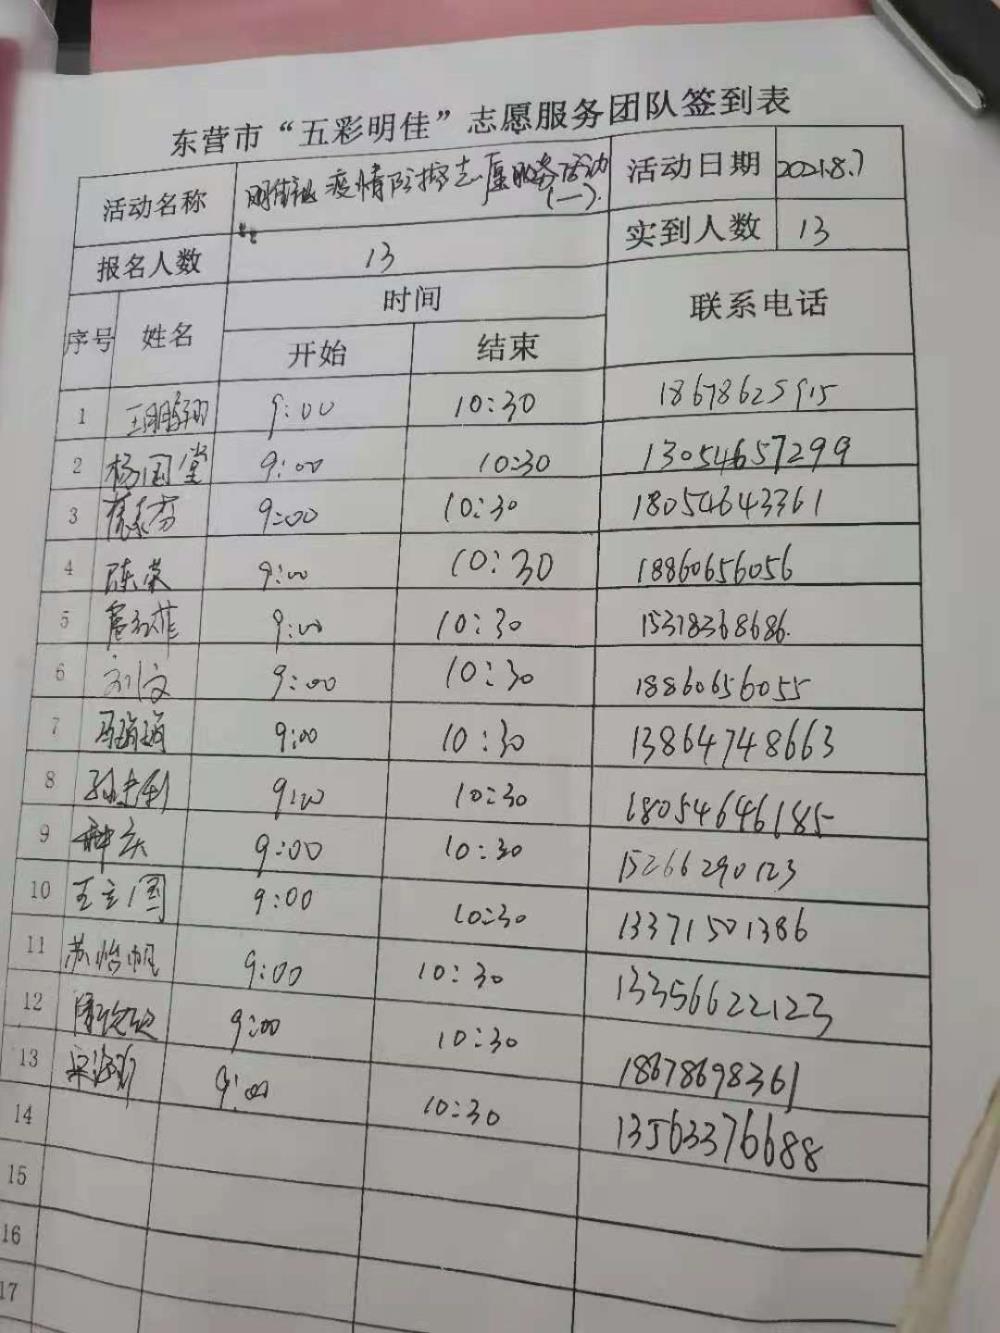 东营市“五彩明佳”志愿服务团队签到表
活动名称 明佳社区疫情防控志愿服务活动(一). 活动日期 2021.8.7
报名人数 13 实到人数 13
序号 姓名 时间 联系电话
开始 结束
1 王鹏翔 9:00 10:30 18678625915
2 杨国堂 9:00 10:30 13054657299
3 9:00 10:30 18054643361
4 陈荣 9:00 10:30 18860656056
5 9:00 10:30 15318368686.
6 刘文 9:00 10:30 18860656055
7 马瑞瑞 9:00 10:30 13864748663
8 9:00 10:30 18054646185
9 种庆 9:00 10:30 15266290123
10 王立国 9:00 10:30 13371501386
11 苏怡帆 9:00 10:30 13356622123
12 9:00 10:30 18678698361
13 9:00 10:30 13563376688
14
15
16
17